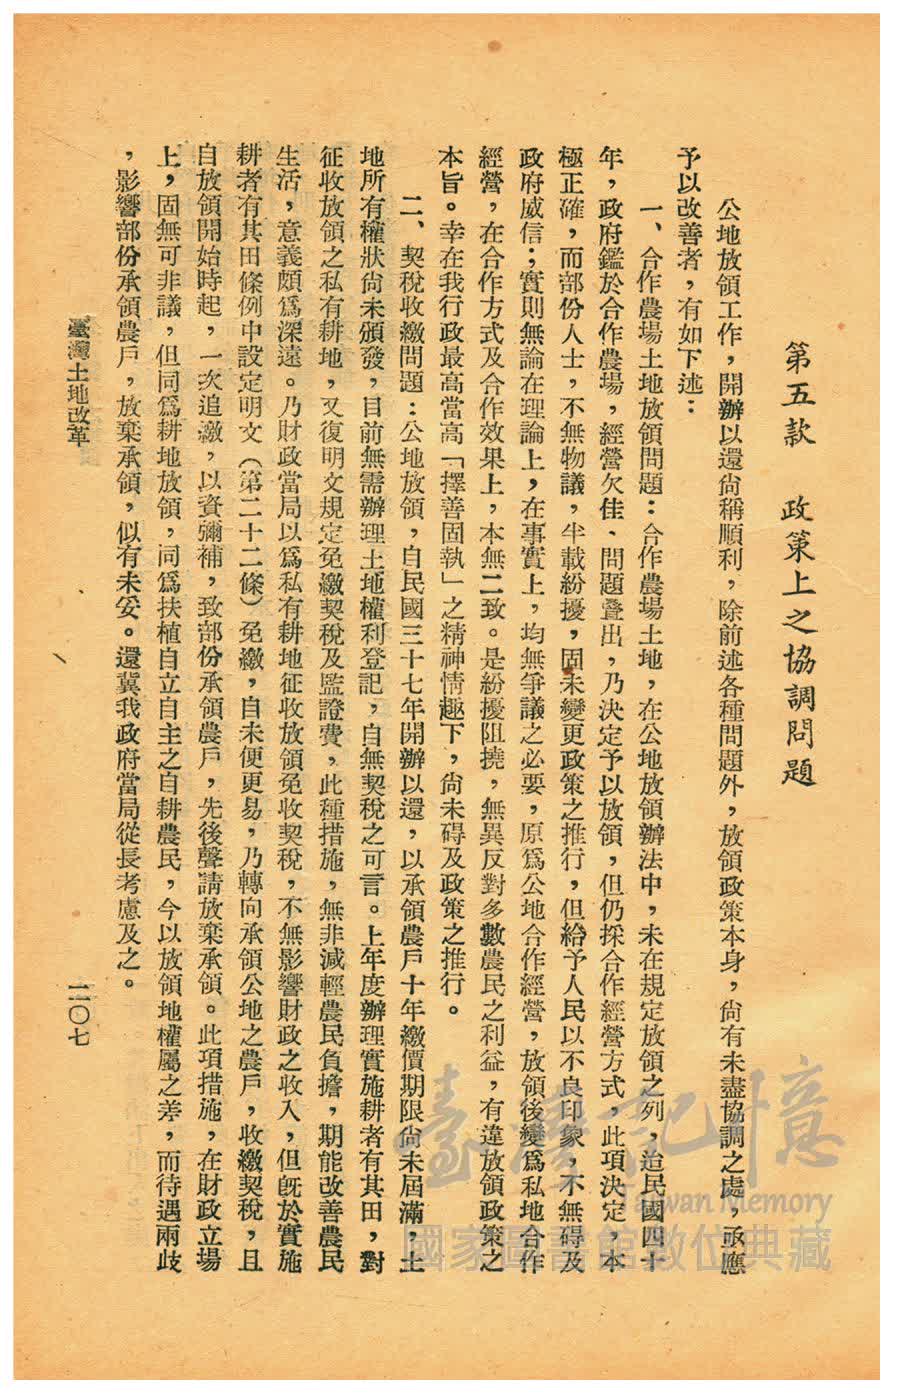 第五款　政策上之協調問題
公地放領工作，開辦以還尙稱順利，除前述各種問題外，放領政策本身，尙有未盡協調之處，亟應
予以改善者，有如下述：
一、合作農場土地放領問題：合作農場土地，在公地放領辦法中，未在規定放領之列，迨民國四十
年，政府鑑於合作農場，經營欠佳、問題叠出，乃決定予以放領，但仍採合作經營方式，此項決定，本
極正確，而部份人士，不無物議，半載紛擾，固未變更政策之推行，但給予人民以不良印象，不無碍及
政府威信；實則無論在理論上，在事實上，均無爭議之必要，原爲公地合作經營，放領後變爲私地合作
經營，在合作方式及合作效果上，本無二致。是紛擾阻撓，無異反對多數農民之利益，有違放領政策之
本旨。幸在我行政最高當高「擇善固執」之精神情趣下，尙未碍及政策之推行。
二、契稅收繳問題：公地放領，自民國三十七年開辦以還，以承領農戶十年繳價期限尙未屆滿，土
地所有權狀尙未頒發，目前無需辦理土地權利登記，自無契稅之可言。上年度辦理實施耕者有其田，對
征收放領之私有耕地，又復明文規定免繳契稅及監證費，此種措施，無非減輕農民負擔，期能改善農民
生活，意義頗爲深遠。乃財政當局以爲私有耕地征收放領免收契稅，不無影響財政之收入，但旣於實施
耕者有其田條例中設定明文（第二十二條）免繳，自未便更易，乃轉向承領公地之農戶，收繳契稅，且
自放領開始時起，一次追繳，以資彌補，致部份承領農戶，先後聲請放棄承領。此項措施，在財政立場
上，固無可非議，但同爲耕地放領，同爲扶植自立自主之自耕農民，今以放領地權屬之差，而待遇兩歧
，影響部份承領農戶，放棄承領，似有未妥。還冀我政府當局從長考慮及之。
臺灣土地改革
二〇七
臺灣記憶
Taiwan Memory
國家圖書館數位典藏